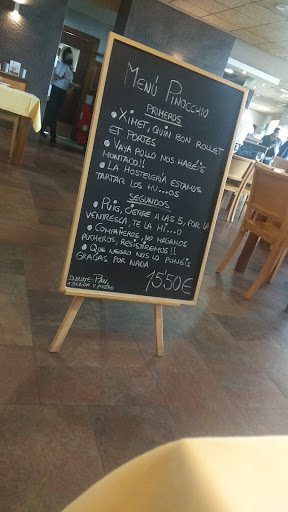 MENÚ PINOCCHIO
PRIMEROS
• XIMET, QUIN BON ROLLET
ET PORTES
• VAYA POLLO NOS HABÉIS
MONTADO!!
• LA HOSTELERÍA ESTAMOS
TARTAR LOS HU...OS
SEGUNDOS
• PUIG, CIERGE A LAS 5, POR LA
VENTRESCA, TE LA HI...O
• COMPAÑEROS, NO HAGAMOS
PUCHEROS, RESISTIREMOS!!
• QUE NEGRO NOS LO PONÉIS
GRACIAS POR NADA
INCLUYE: PAN,
1 BEBIDA Y POSTRE
15'50€